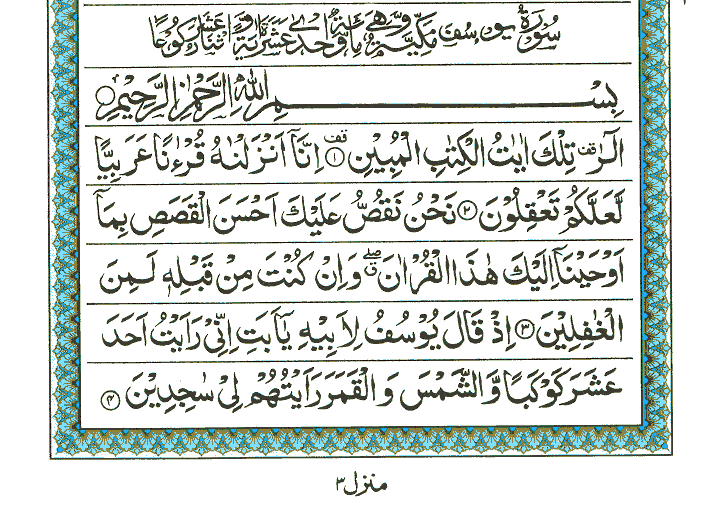 سُوْرَةُ يُوْسُفَ مَكِّيَّةٌ وَّهِيَ مِائَةٌ وَّاِحْدٰى عَشْرَةَ اٰيَةً وَّاثْنَا عَشَرَ رُكُوْعًا
بِسْمِ اللّٰهِ الرَّحْمٰنِ الرَّحِيْمِ
الٓرٰ ۫ تِلْكَ اٰيٰتُ الْكِتٰبِ الْمُبِيْنِ ۫ ﴿۱﴾ اِنَّاۤ اَنْزَلْنٰهُ قُرْءٰنًا عَرَبِيًّا
لَّعَلَّكُمْ تَعْقِلُوْنَ ﴿۲﴾ نَحْنُ نَقُصُّ عَلَيْكَ اَحْسَنَ الْقَصَصِ بِمَاۤ
اَوْحَيْنَاۤ اِلَيْكَ هٰذَا الْقُرْاٰنَ ۖق وَاِنْ كُنْتَ مِنْ قَبْلِهٖ لَمِنَ
الْغٰفِلِيْنَ ﴿۳﴾ اِذْ قَالَ يُوْسُفُ لِاَبِيْهِ يٰۤاَبَتِ اِنِّيْ رَاَيْتُ اَحَدَ
عَشَرَ كَوْكَبًا وَّالشَّمْسَ وَالْقَمَرَ رَاَيْتُهُمْ لِيْ سٰجِدِيْنَ ﴿۴﴾
منزل ۳